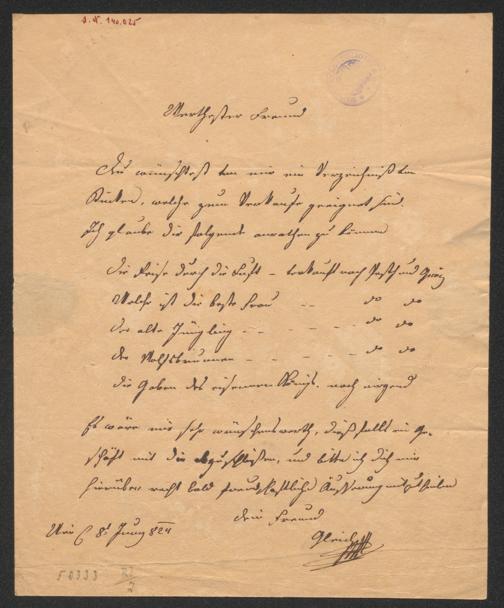 J. N. 140.025
Werthester Freund
Du wünschtest von mir ein Verzeichniß von
Stücken, welche zum Verkaufe geeignet sind.
Ich glaube dir folgende anrathen zu können
Die Reise durch die Luft – verkauft nach Pesth und Graz
Welche ist die beste Frau – – do do
Der alte Jüngling – – – – – do do
Der Wolfsbrunnen – – – – – do do
Die Gaben des eisernen Königs. noch nirgend
Es wäre mir sehr wünschenswerth, dießfalls ein Ge-
schäft mit dir abzuschließen, und bitte ich dich mir
hierüber recht bald freundschaftliche Äußerung mitzutheilen
Dein Freund
Gleich
Wien 8t Juny 824
F 0333